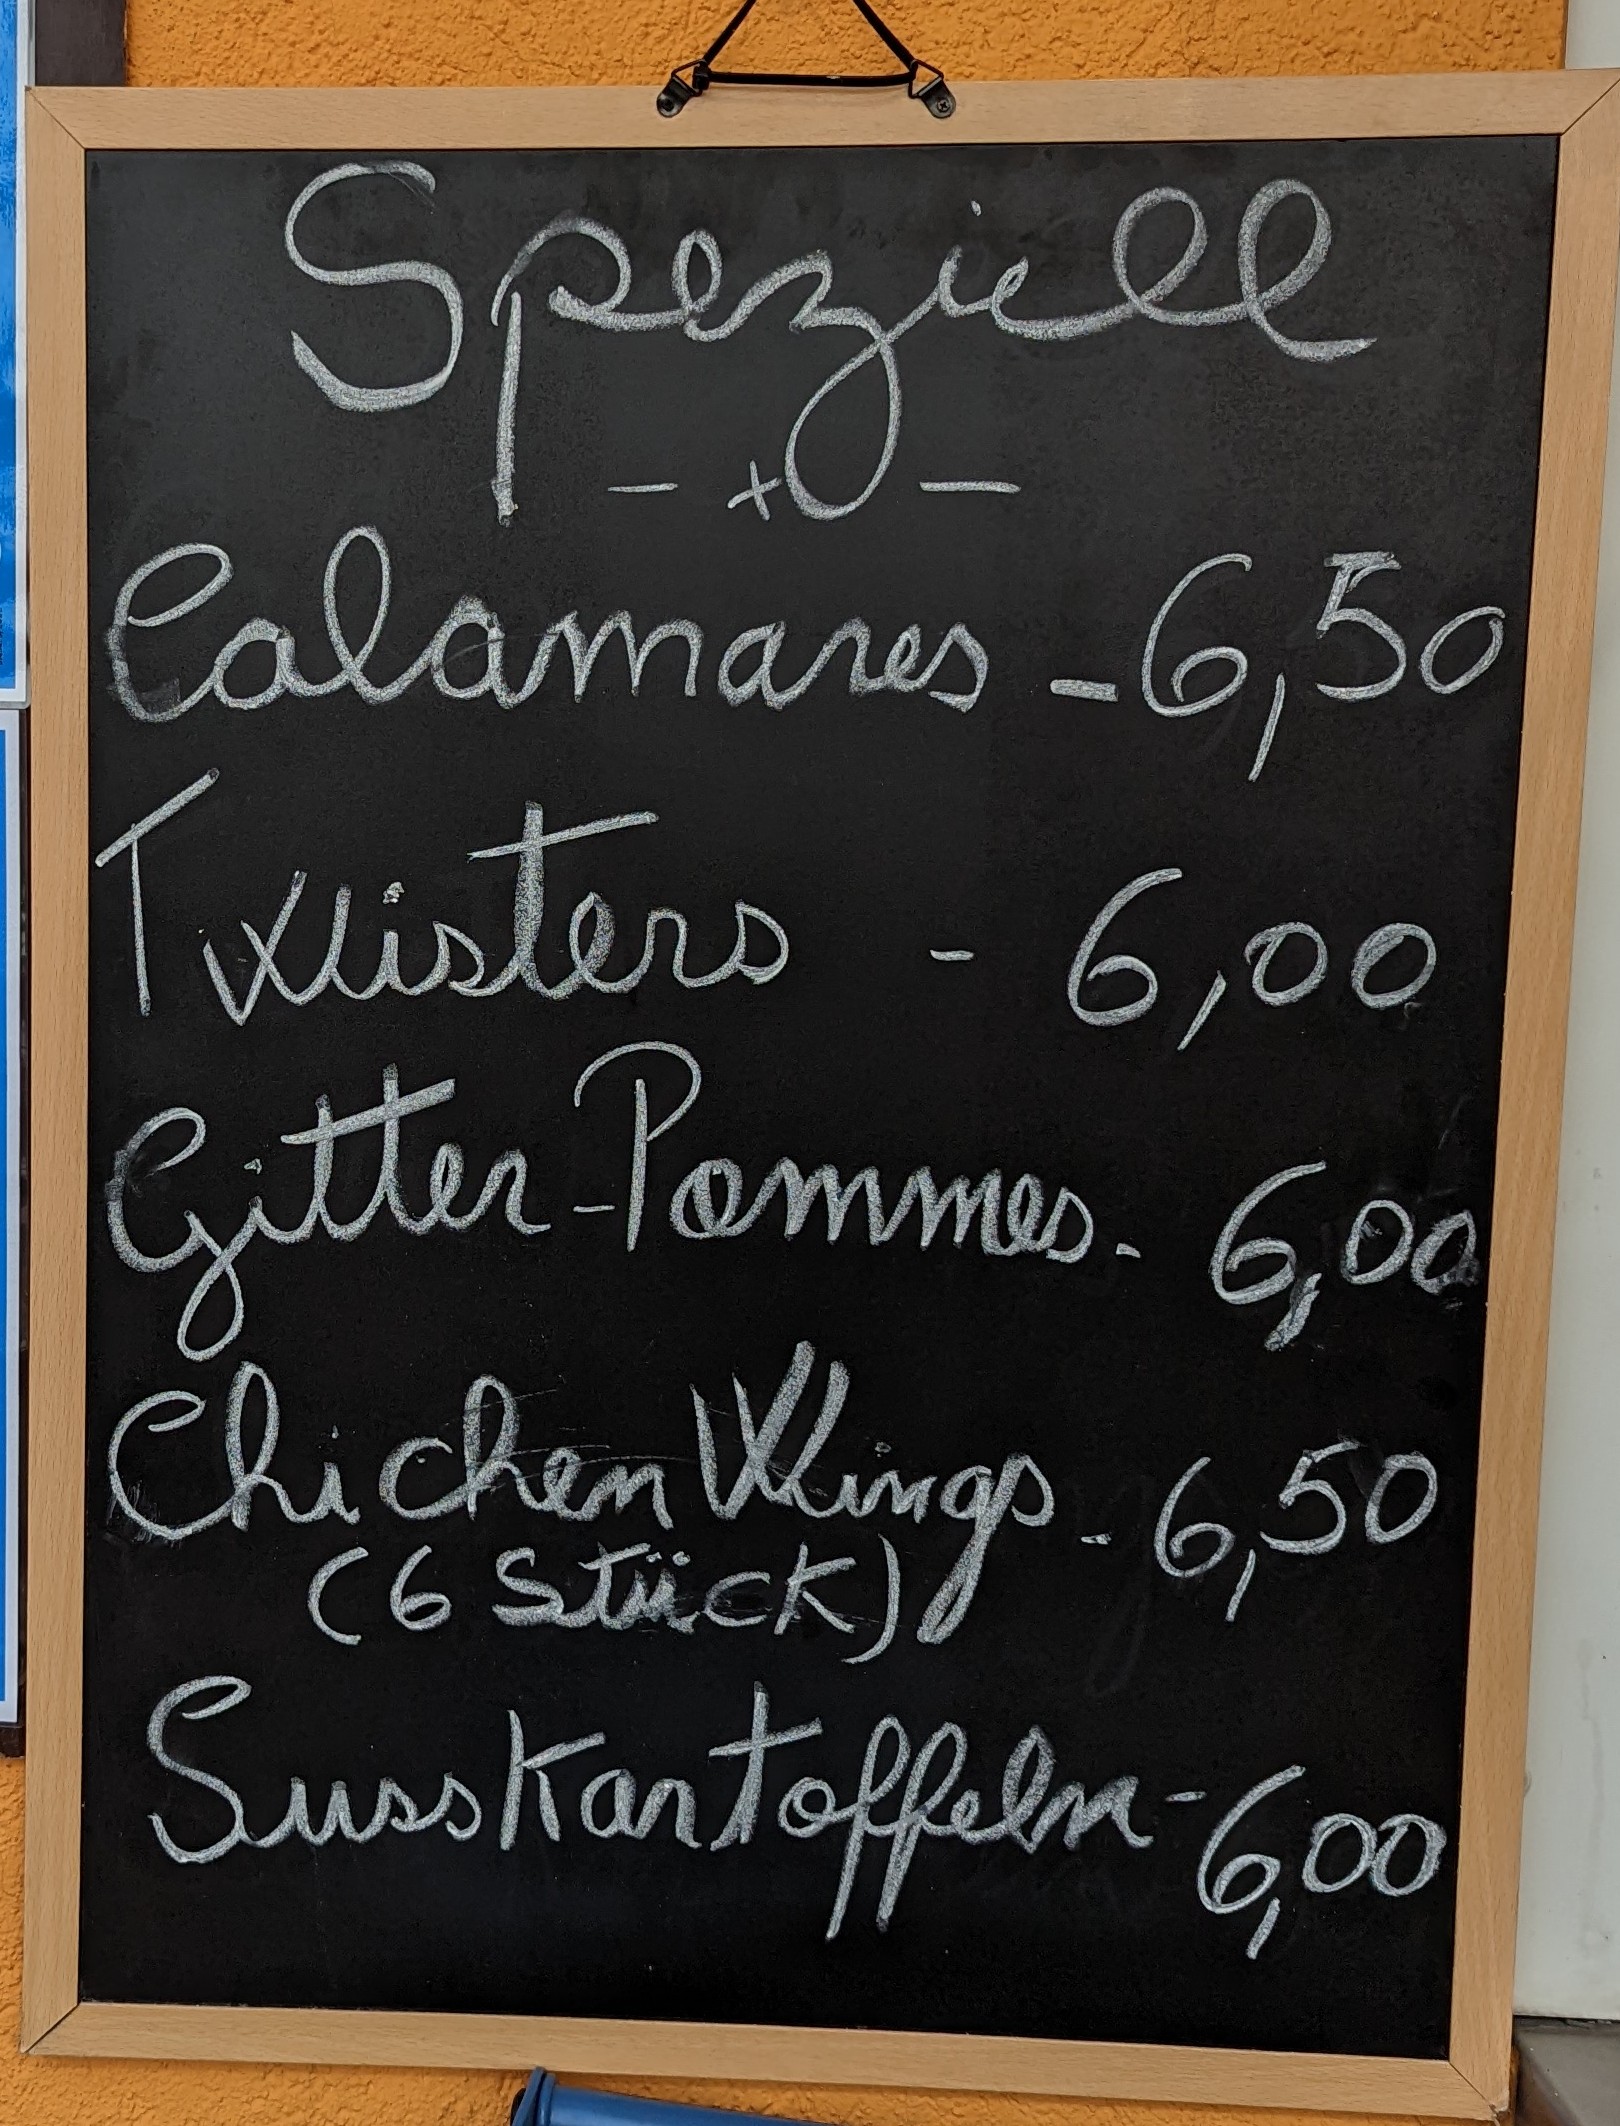 Speziell
- + -
Calamares - 6,50
Twisters - 6,00
Gitter-Pommes - 6,00
Chicken Wings - 6,50
(6 Stück)
Susskartoffeln - 6,00